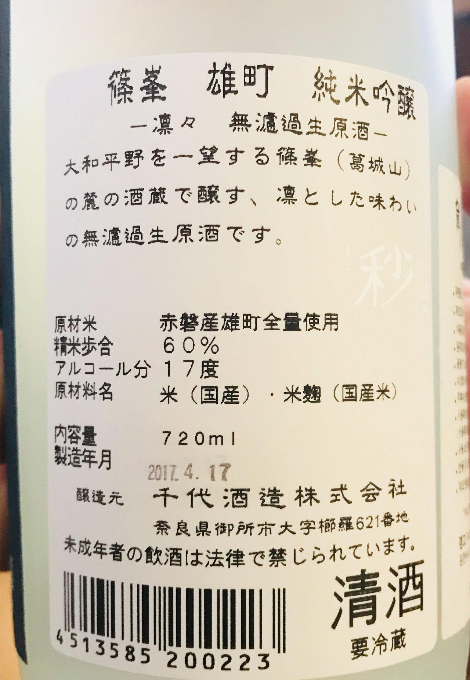 篠峯 雄町 純米吟醸
―凛々 無濾過生原酒―
大和平野を一望する篠峯（葛城山）
の麓の酒蔵で醸す、凛とした味わい
の無濾過生原酒です。
秒
原材米 赤磐産雄町全量使用
精米歩合 ６０％
アルコール分 １７度
原材料名 米（国産）・米麹（国産米）
内容量 ７２０ｍｌ
製造年月 2017.4.17
醸造元 千代酒造株式会社
奈良県御所市大字櫛羅621番地
未成年者の飲酒は法律で禁じられています。
清酒
要冷蔵
4513585200223